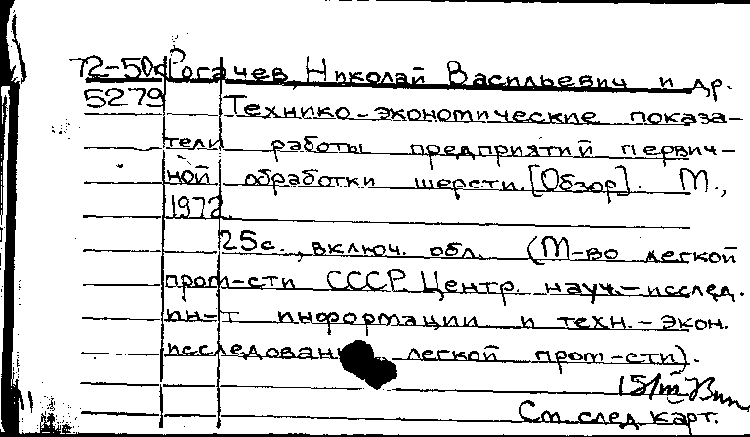 72-50к Рогачев, Николай Васильевич и др.
5279 Технико-экономические показа-
тели работы предприятий первич-
ной обработки шерсти. [Обзор]. М.,
1972.
25с., включ. обл. (М-во легкой
пром-сти СССР. Центр. науч.-исслед.
ин-т информации и техн.-экон.
легкой пром-сти).
См. след. карт.